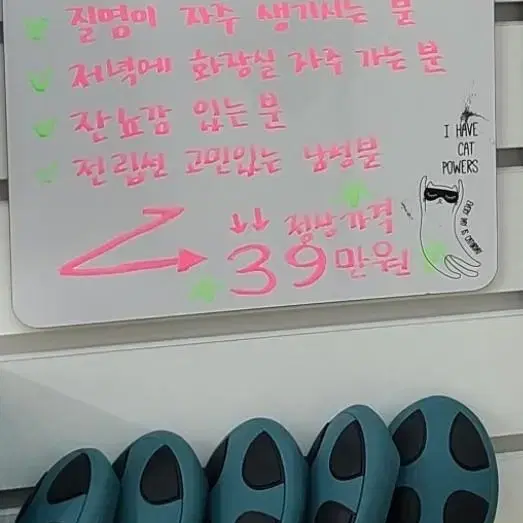 질염이 자주 생기시는 분
저녁에 화장실 자주 가는 분
잔뇨감 있는 분
전립선 고민있는 남성분
정상가격
39만원
I HAVE
CAT
POWERS